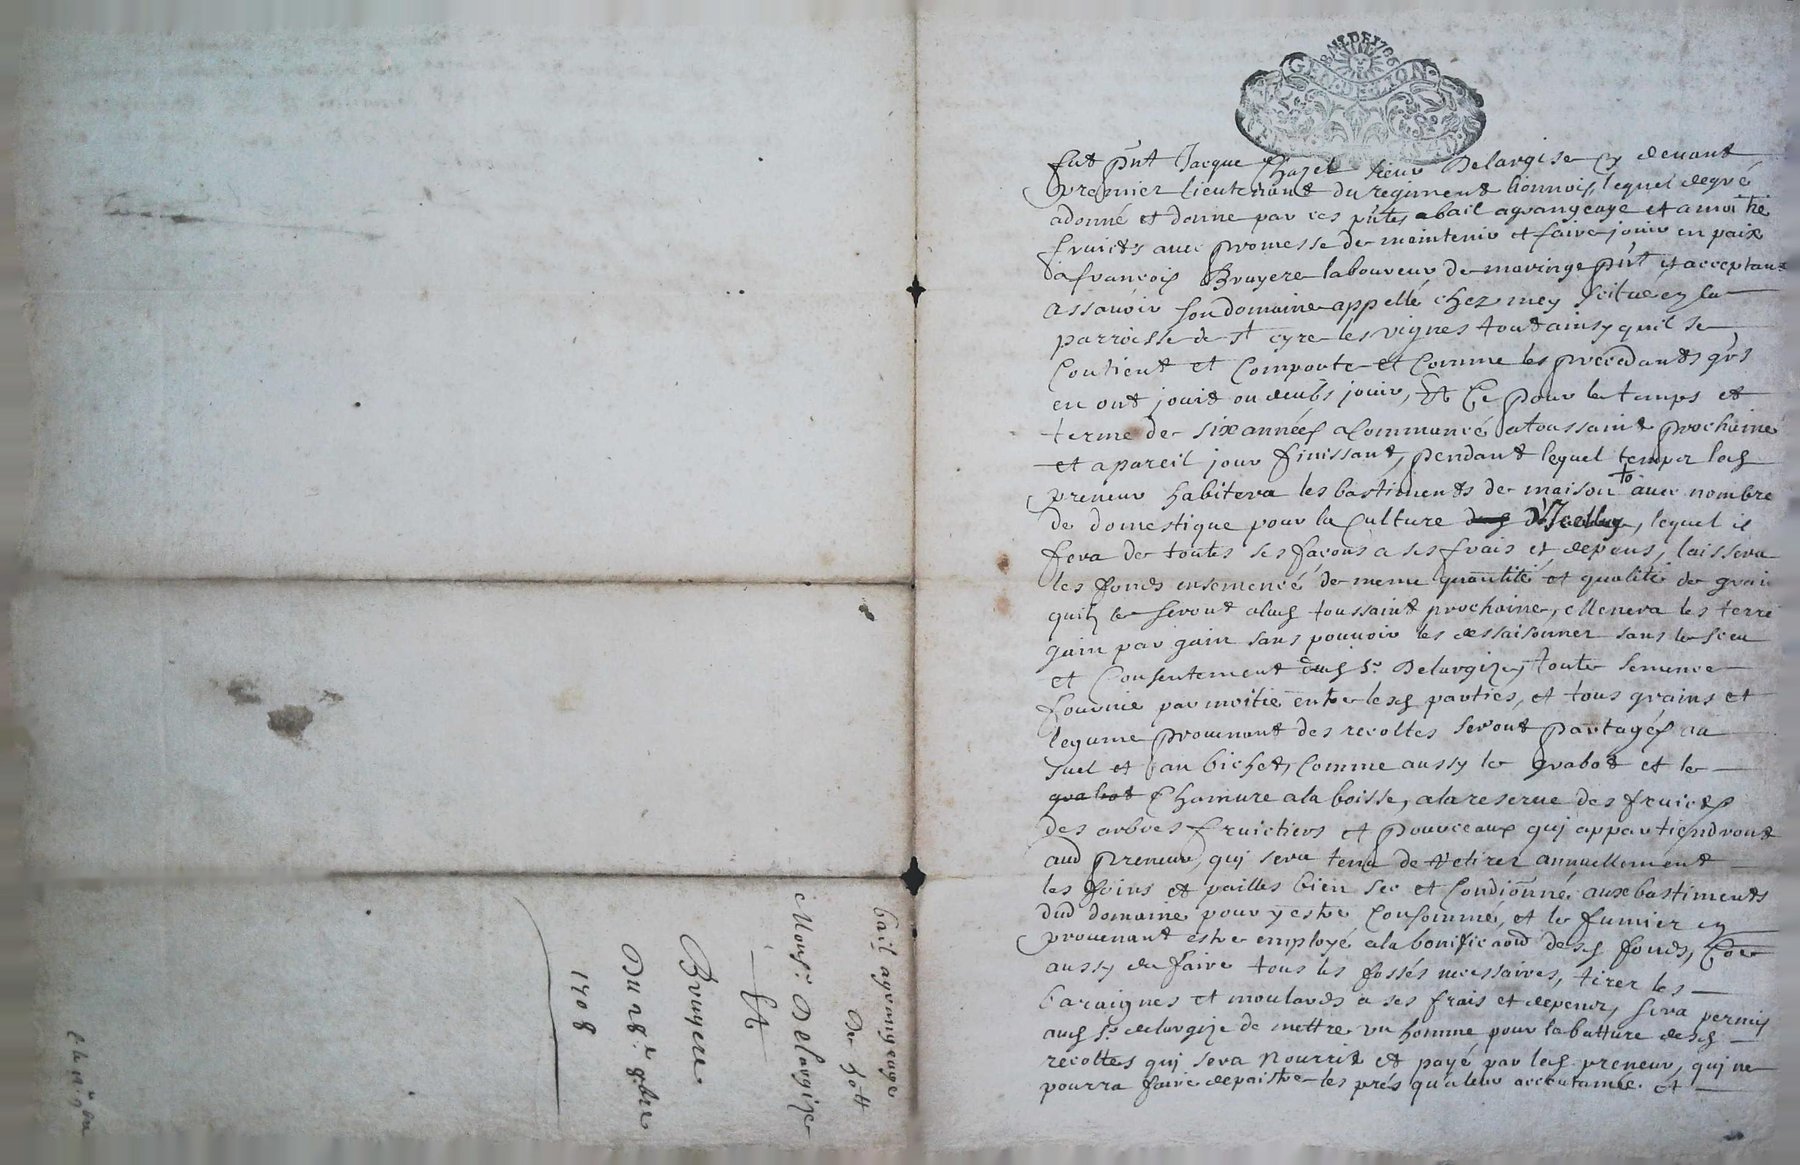 BAIL DE 1706
GEN. DE LION
fut pnt Jacque Chazel sieur Delargise cy devant
premier lieutenant du regiment lionnois, lequel degré
a donné et donne par ces pntes abail agrangeage et a moitié
fruicts avec promesse de maintenir et faire jouir en paix
a françois Bruyere laboureur de maringe pnt et acceptant
assavoir son domaine appellé chez mey scitué en la
parroisse de st cyre les vignes tout ainsy quil se
Contient et Comporte et Comme les precedants grs
en ont jouit ou deubs jouir, Et Ce pour le temps et
terme de six années a Commancé a toussaint prochaine
et a pareil jour finissant, pendant lequel temps led
preneur habitera les bastiments de maison avec nombre
de domestique pour la Culture d'Icelluy, lequel il
fera de toutes ses façons a ses frais et depens, laissera
les fonds ensemencé de meme quantité et qualité de grain
quilz le seront alad toussaint prochaine, Menera les terre
gain par gain sans pouvoir les dessaisonner sans le sceu
et Consentement dud sr Delargize, toute semence
fournie par moitié entre lesd parties, et tous grains et
legume provenant des recoltes seront partagés au
suel et au bichet, Comme aussy le grabot et le
grabot Chamure a la boisse, a la reserve des fruicts
des arbres fruictiers et pourceaux qui appartiendront
aud preneur, qui sera tenu de retirer annuellement
les foins et pailles bien sec et Condionné aux bastiments
dud domaine pour y estre Consommé, et le fumier en
provenant estre employé a la bonificaon desd fonds, Coe
aussy de faire tous les fossés necessaires, tirer les
baraignes et moulards a ses frais et depens, sera permis
aud sr delargize de mettre un homme pour la batture desd
recoltes qui sera nourrit et payé par led preneur, qui ne
pourra faire depaistre les prés qu'a leur accoutumée et
bail agrangeage
De hott
Monsr Delargize
Et
Bruyere
Du 28e 8bre
1708